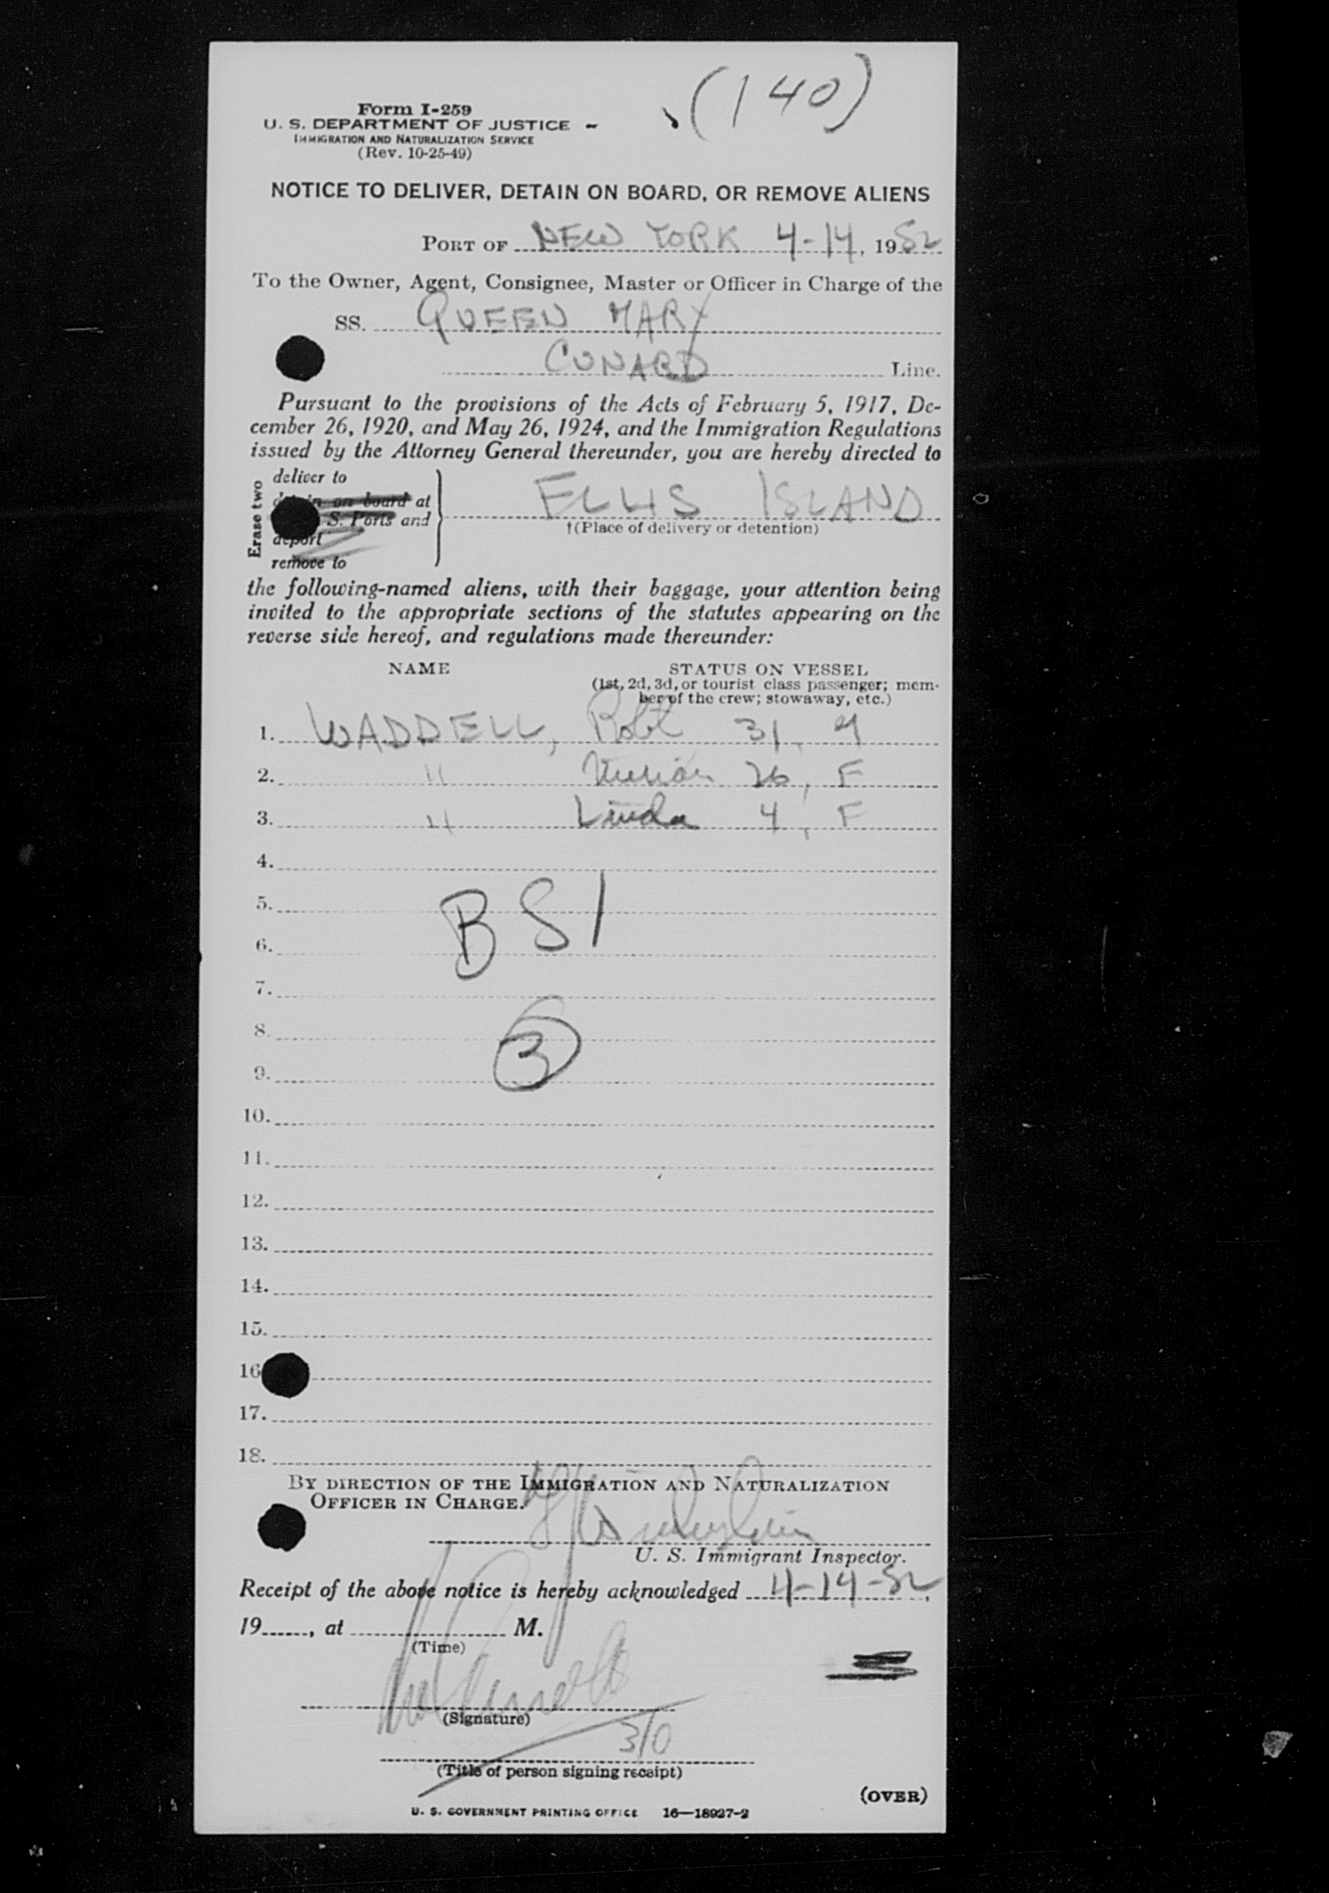 (140)
Form I-259
U. S. DEPARTMENT OF JUSTICE
IMMIGRATION AND NATURALIZATION SERVICE
(Rev. 10-25-49)
NOTICE TO DELIVER, DETAIN ON BOARD, OR REMOVE ALIENS
PORT OF NEW YORK 4-14, 1952
To the Owner, Agent, Consignee, Master or Officer in Charge of the
SS. QUEEN MARY
CUNARD Line.
Pursuant to the provisions of the Acts of February 5, 1917, De-
cember 26, 1920, and May 26, 1924, and the Immigration Regulations
issued by the Attorney General thereunder, you are hereby directed to
Erase two
deliver to
detain on board at
S. Ports and
deport
remove to
ELLIS ISLAND
†(Place of delivery or detention)
the following-named aliens, with their baggage, your attention being
invited to the appropriate sections of the statutes appearing on the
reverse side hereof, and regulations made thereunder:
NAME STATUS ON VESSEL
(1st, 2d, 3d, or tourist class passenger; mem-
ber of the crew; stowaway, etc.)
1. WADDELL, Robt 31,
2. " 26, F
3. " Linda 4, F
4.
5.
BSI
6.
7.
8.
3
9.
10.
11.
12.
13.
14.
15.
16
17.
18.
BY DIRECTION OF THE IMMIGRATION AND NATURALIZATION
OFFICER IN CHARGE.
U. S. Immigrant Inspector.
Receipt of the above notice is hereby acknowledged 4-14-52,
19......, at M.
(Time)
(Signature)
3/0
(Title of person signing receipt)
(OVER)
U. S. GOVERNMENT PRINTING OFFICE 16—18927-2